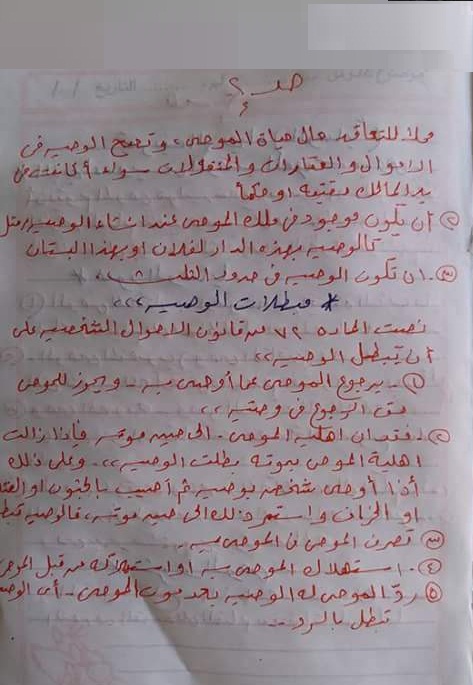 صـ ٤
محلا للتعاقد حال حياة الموصي، وتصح الوصيه في
الاموال والعقارات والمنقولات سواء أكانت في
يد المالك حقيقة او حكماً
② أن يكون موجود في ملك الموصي عند انشاء الوصيه، مثل
كالوصيه بهذه الدار لفلان او بهذا البستان
③ - ان تكون الوصيه في حدود الثلث
* مبطلات الوصيه ،،،
نصت الماده ٧٢ من قانون الاحوال الشخصيه على
أن تبطل الوصيه ،،
① - برجوع الموصي عما أوصى به - ويجوز للموصي
حق الرجوع في وصيته ،،
② - فقدان اهلية الموصي - الى حين موته فاذا زالت
اهلية الموصي بموته بطلت الوصيه ،، - وعلى ذلك
أذا أوصى شخص بوصيه ثم أصيب بالجنون او العته
او الخرف واستمر ذلك الى حين موته، فالوصيه تبطل
③ تصرف الموصي في الموصى به -
④ - استهلاك الموصى به أو استهلاكه من قبل الموصي
⑤ ردّ الموصى له الوصيه بعد موت الموصي - أي الوصيه
تبطل بالرد -